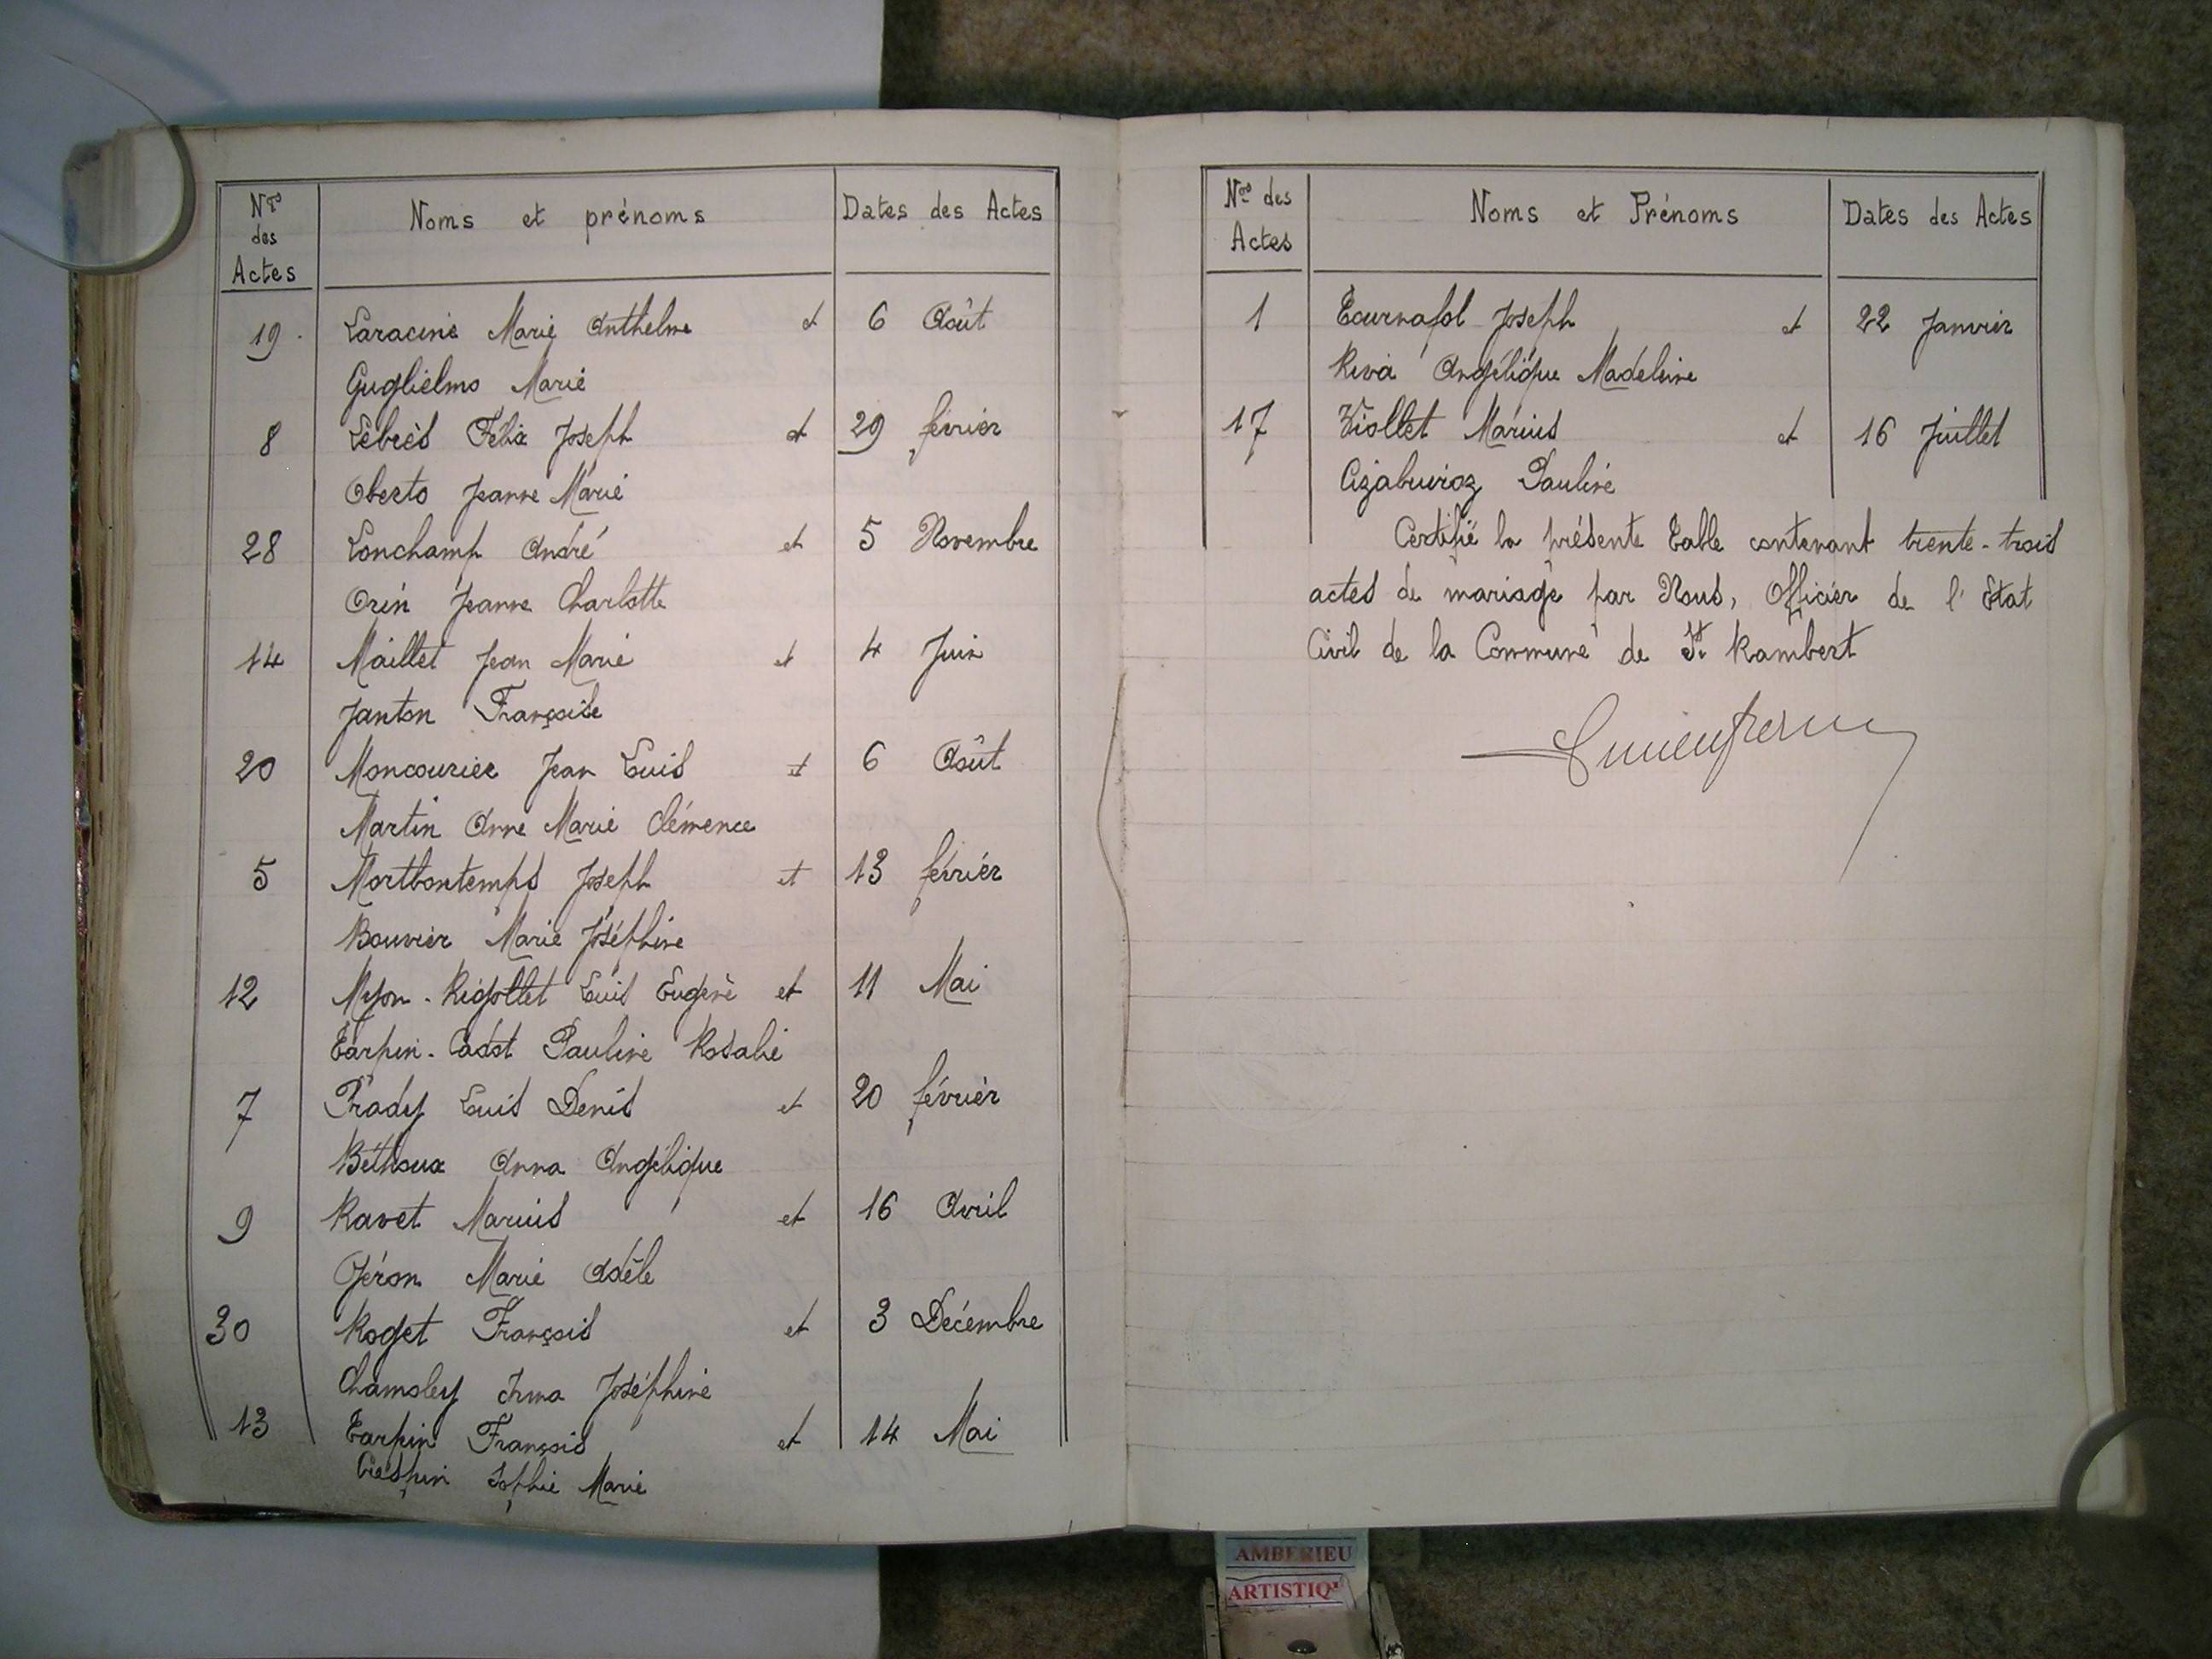 Nos
des
Actes
Noms et prénoms
Dates des Actes
19 Laracine Marie Anthelme et 6 Août
Guglielmo Marie
8 Lebrès Félix Joseph et 29 février
Oberto Jeanne Marie
28 Lonchamp André et 5 Novembre
Orin Jeanne Charlotte
14 Maillet Jean Marie et 4 Juin
Janton Françoise
20 Moncourier Jean Louis et 6 Août
Martin Anne Marie Clémence
5 Mortbontemps Joseph et 13 février
Bouvier Marie Joséphine
12 Myon-Rigollet Louis Eugène et 11 Mai
Tarpin-Cadot Pauline Rosalie
7 Prady Louis Denis et 20 février
Béthoux Anna Angélique
9 Ravet Marius et 16 Avril
Géron Marie Adèle
30 Roget François et 3 Décembre
Chamsley Irma Joséphine
13 Tarpin François et 14 Mai
Crespin Sophie Marie
Nos des
Actes
Noms et Prénoms
Dates des Actes
1 Tournafol Joseph et 22 Janvier
Riva Angélique Madeleine
17 Viollet Marius et 16 Juillet
Cizabuiroz Pauline
Certifié la présente Table contenant trente-trois
actes de mariage par Nous, Officier de l'Etat
Civil de la Commune de St Rambert
AMBERIEU
ARTISTIQ